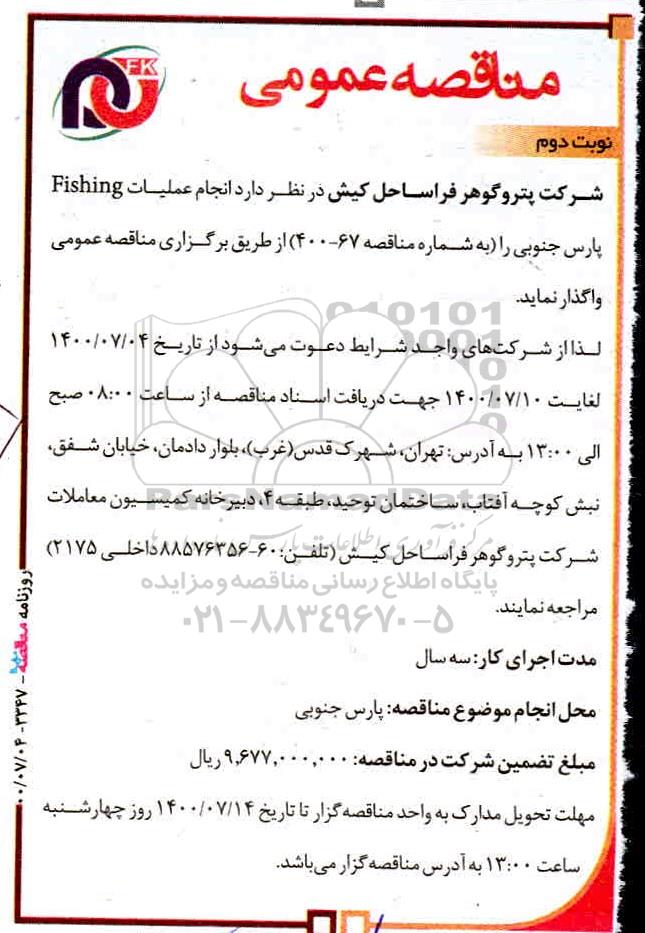 FK
مناقصه عمومی
نوبت دوم
شرکت پتروگوهر فراساحل کیش در نظر دارد انجام عملیات Fishing
پارس جنوبی را (به شماره مناقصه ۶۷-۴۰۰) از طریق برگزاری مناقصه عمومی
واگذار نماید.
لذا از شرکت‌های واجد شرایط دعوت می‌شود از تاریخ ۱۴۰۰/۰۷/۰۴
لغایت ۱۴۰۰/۰۷/۱۰ جهت دریافت اسناد مناقصه از ساعت ۰۸:۰۰ صبح
الی ۱۳:۰۰ به آدرس: تهران، شهرک قدس(غرب)، بلوار دادمان، خیابان شفق،
نبش کوچه آفتاب، ساختمان توحید، طبقه ۴، دبیرخانه کمیسیون معاملات
شرکت پتروگوهر فراساحل کیش (تلفن: ۶۰-۸۸۵۷۶۳۵۶ داخلی ۲۱۷۵)
مراجعه نمایند.
مدت اجرای کار: سه سال
محل انجام موضوع مناقصه: پارس جنوبی
مبلغ تضمین شرکت در مناقصه: ۹,۶۷۷,۰۰۰,۰۰۰ ریال
مهلت تحویل مدارک به واحد مناقصه‌گزار تا تاریخ ۱۴۰۰/۰۷/۱۴ روز چهارشنبه
ساعت ۱۳:۰۰ به آدرس مناقصه‌گزار می‌باشد.
روزنامه مناقصه - ۳۳۴۷ - ۰۰/۰۷/۰۴
ParsNamadData
پایگاه اطلاع رسانی مناقصه و مزایده
۰۲۱-۸۸۳۴۹۶۷۰-۵